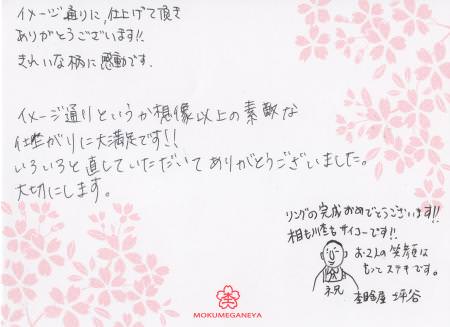 イメージ通りに、仕上げて頂き
ありがとうございます!!
きれいな柄に感動です.
イメージ通りというか想像以上の素敵な
仕上がりに大満足です!!
いろいろと直していただいてありがとうございました。
大切にします。
リングの完成おめでとうございます!!
相も杢もサイコーです!!
お二人の笑顔は
もっとステキです。
祝
杢目金屋 坪谷
MOKUMEGANEYA